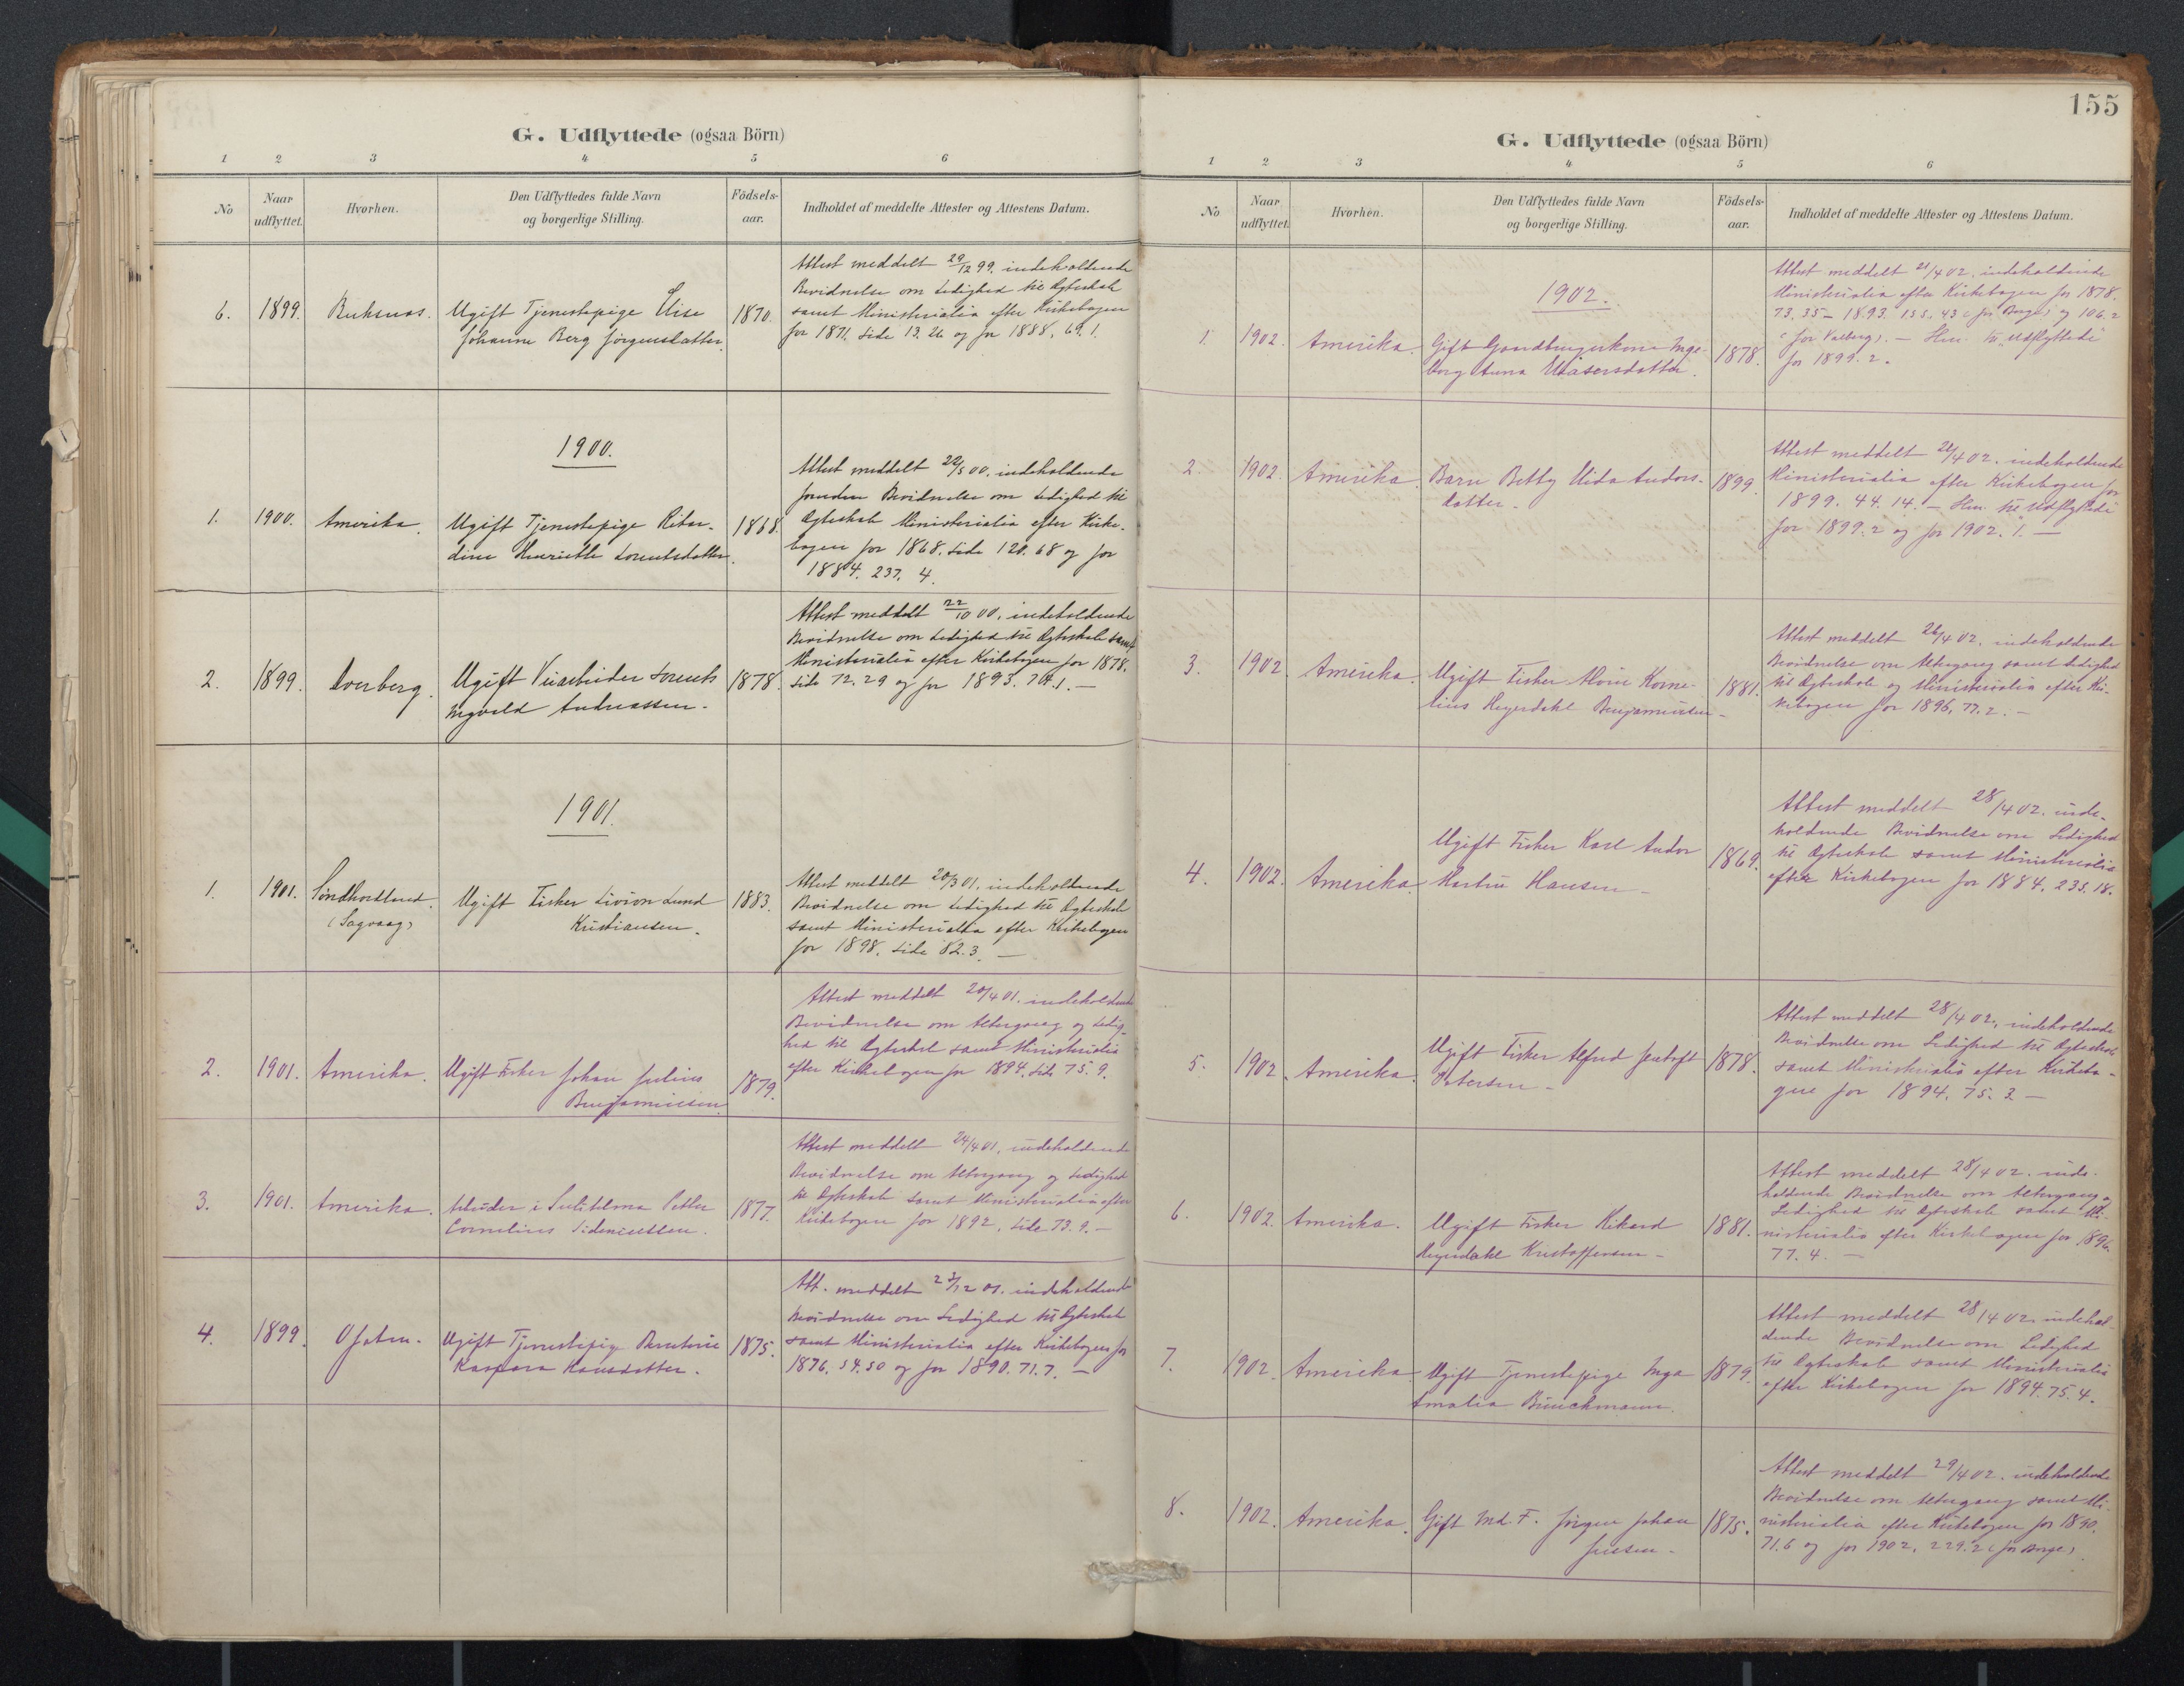 G. Udflyttede (ogsaa Börn)
1 2 3 4 5 6
No
Naar udflyttet.
Hvorhen.
Den Udflyttedes fulde Navn
og borgerlige Stilling.
Födsels-
aar.
Indholdet af meddelte Attester og Attestens Datum.
6. 1899. Buksnæs. Ugift Tjenestepige Elise
Johanne Berg Jörgensdatter.
1870.
Attest meddelt 29/12 99. indeholdende
Bevidnelse om Ledighed til Ægteskab
samt Ministerialia efter Kirkebogen
for 1871. Side 13. 26 og for 1888, 69. 1.
1900.
1. 1900. Amerika. Ugift Tjenestepige
dine Henriette Lorentsdatter.
1868.
Attest meddelt 22/5 00. indeholdende
foruden Bevidnelse om Ledighed til
Ægteskab Ministerialia efter Kirke-
bogen for 1868. Side 120. 68 og for
1884. 237. 4.
2. 1899. Dverberg. Ugift Veiarbeider Lorents
Ingvald Andreassen.
1878.
Attest meddelt 22/10 00. indeholdende
Bevidnelse om Ledighed til Ægteskab samt
Ministerialia efter Kirkebogen for 1878.
Side 72. 29 og for 1893. 74. 1. —
1901.
1. 1901. Söndhordland.
(Sagvaag)
Ugift Fisker Sivion Lund
Kristiansen.
1883.
Attest meddelt 20/3 01. indeholdende
Bevidnelse om Ledighed til Ægteskab
samt Ministerialia efter Kirkebogen
for 1898. Side 82. 3. —
2. 1901. Amerika. Ugift Fisker Johan Julius
Benjaminsen.
1879.
Attest meddelt 20/4 01. indeholdende
Bevidnelse om Altergang og Ledig-
hed til Ægteskab samt Ministerialia
efter Kirkebogen for 1894. Side 75. 9.
3. 1901. Amerika. Arbeider i Sulitelma Petter
Cornelius
1877.
Attest meddelt 24/4 01. indeholdende
Bevidnelse om Altergang og Ledighed
til Ægteskab samt Ministerialia efter
Kirkebogen for 1892, Side 73. 9. —
4. 1899. Ofoten. Ugift Tjenestepige
Kaspara Hansdatter.
1875.
Att. meddelt 23/12 01. indeholdende
Bevidnelse om Ledighed til Ægteskab
samt Ministerialia efter Kirkebogen for
1876. 54. 50 og for 1890. 71. 7. —
155
G. Udflyttede (ogsaa Börn)
1 2 3 4 5 6
No
Naar udflyttet.
Hvorhen.
Den Udflyttedes fulde Navn
og borgerlige Stilling.
Födsels-
aar.
Indholdet af meddelte Attester og Attestens Datum.
1902.
1. 1902. Amerika. Gift Gaardbrugerkone Inge-
borg Anna
1878.
Attest meddelt 21/4 02. indeholdende
Ministerialia efter Kirkebogen for 1878.
73. 35 – 1893. 155. 43 (for Borge) og 106. 2
(for Valberg). — Hen. til Udflyttede
for 1899. 2.
2. 1902. Amerika. Barn Betty Alida Andors-
datter.
1899.
Attest meddelt 21/4 02. indeholdende
Ministerialia efter Kirkebogen for
1899. 44. 14. — Hen. til Udflyttede
for 1899. 2 og for 1902. 1. —
3. 1902. Amerika. Ugift Fisker Korne-
lius Heyerdahl Benjaminsen
1881.
Attest meddelt 26/4 02. indeholdende
Bevidnelse om Altergang samt Ledighed
til Ægteskab og Ministerialia efter Kir-
kebogen for 1896, 77. 2. —
4. 1902. Amerika. Ugift Fisker Karl Andor
Martin Hansen
1869.
Attest meddelt 28/4 02. inde-
holdende Bevidnelse om Ledighed
til Ægteskab samt Ministerialia
efter Kirkebogen for 1884. 235. 18.
5. 1902. Amerika. Ugift Fisker Alfred Jentoft
Petersen
1878.
Attest meddelt 28/4 02. indeholdende
Bevidnelse om Ledighed til Ægteskab
samt Ministerialia efter Kirkebo-
gen for 1894. 75. 2 —
6. 1902. Amerika. Ugift Fisker Rikard
Heyerdahl Kristoffersen
1881.
Attest meddelt 28/4 02. inde-
holdende Bevidnelse om Altergang og
Ledighed til Ægteskab samt Mi-
nisterialia efter Kirkebogen for 1896.
77. 4. —
7. 1902. Amerika. Ugift Tjenestepige Inga
Amalia Binchmann.
1879.
Attest meddelt 28/4 02. indehol-
dende Bevidnelse om Ledighed
til Ægteskab samt Ministerialia
efter Kirkebogen for 1894. 75. 4.
8. 1902. Amerika. Gift Md. F. Jörgen Johan
Jensen
1875.
Attest meddelt 29/4 02. indeholdende
Bevidnelse om Altergang samt Mi-
nisterialia efter Kirkebogen for 1890.
71. 6 og for 1902. 229. 2 (for Borge).